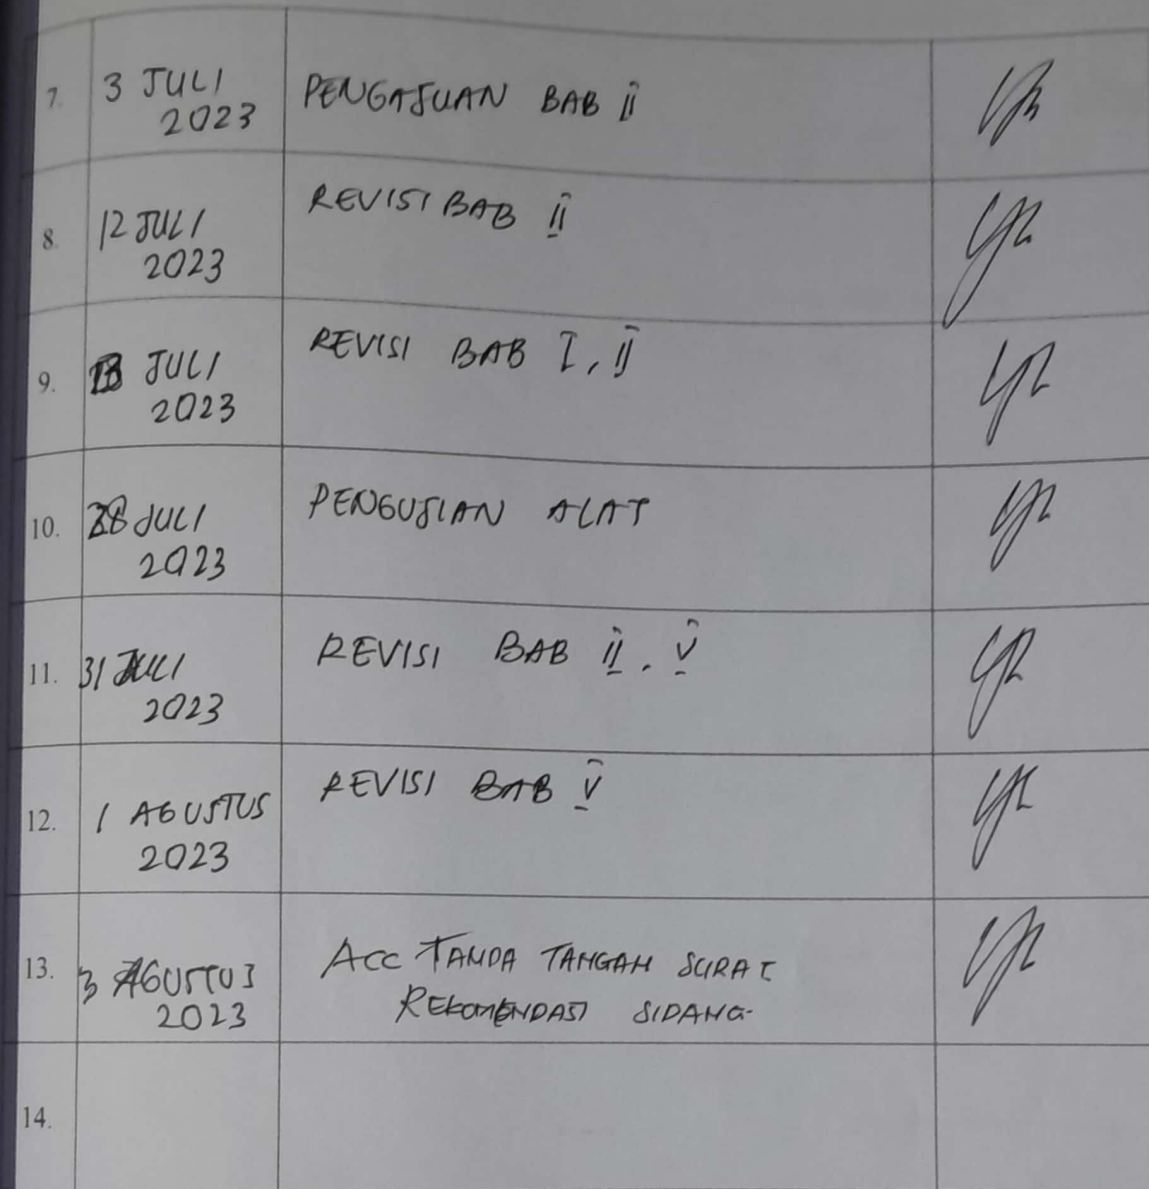 7. 3 JULI
2023
PENGAJUAN BAB II
8. 12 JULI
2023
REVISI BAB II
9. 13 JULI
2023
REVISI BAB I, II
10. 28 JULI
2023
PENGUJIAN ALAT
11. 31 JULI
2023
REVISI BAB II, V
12. 1 AGUSTUS
2023
REVISI BAB V
13. 3 AGUSTUS
2023
ACC TANDA TANGAN SURAT
REKOMENDASI SIDANG
14.